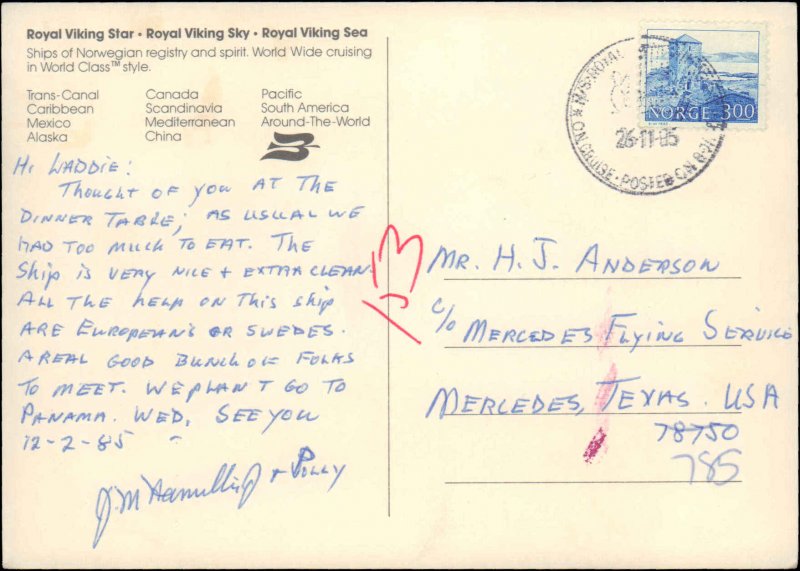 Royal Viking Star • Royal Viking Sky • Royal Viking Sea
Ships of Norwegian registry and spirit. World Wide cruising
in World Class™ style.
Trans-Canal
Caribbean
Mexico
Alaska
Canada
Scandinavia
Mediterranean
China
Pacific
South America
Around-The-World
Hi Laddie:
Thought of you at the
dinner table; as usual we
had too much to eat. The
ship is very nice + extra clean.
All the help on this ship
are European's or Swedes.
A real good bunch of folks
to meet. We plan t go to
Panama. Wed, see you
12-2-85
J.M. + Polly
NORGE 300
M/S ROYAL
ON CRUISE • POSTED ON
26-11-85
13
Mr. H. J. Anderson
c/o Mercedes Flying Service
Mercedes, Texas. USA
78750
785